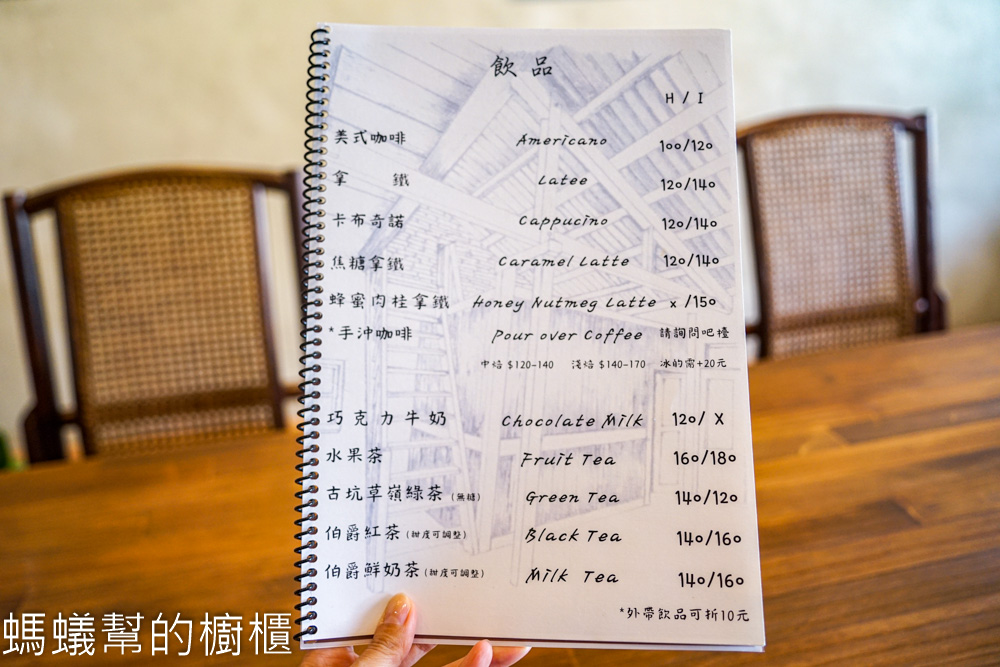 飲品
H / I
美式咖啡 Americano 100/120
拿鐵 Latee 120/140
卡布奇諾 Cappucino 120/140
焦糖拿鐵 Caramel Latte 120/140
蜂蜜肉桂拿鐵 Honey Nutmeg Latte x /150
*手沖咖啡 Pour over Coffee 請詢問吧檯
中焙 $120-140 淺焙 $140-170 冰的需+20元
巧克力牛奶 Chocolate Milk 120/ X
水果茶 Fruit Tea 160/180
古坑草嶺綠茶 (無糖) Green Tea 140/120
伯爵紅茶 (甜度可調整) Black Tea 140/160
伯爵鮮奶茶 (甜度可調整) Milk Tea 140/160
*外帶飲品可折10元
螞蟻幫的櫥櫃